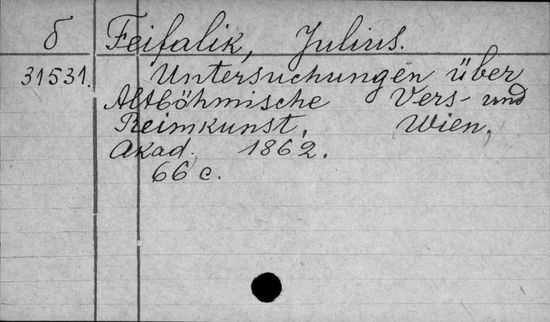 б Feifalik, Julius.
31531. Untersuchungen über
Altböhmische Vers- und
Reimkunst, Wien,
Akad. 1862.
66 c.